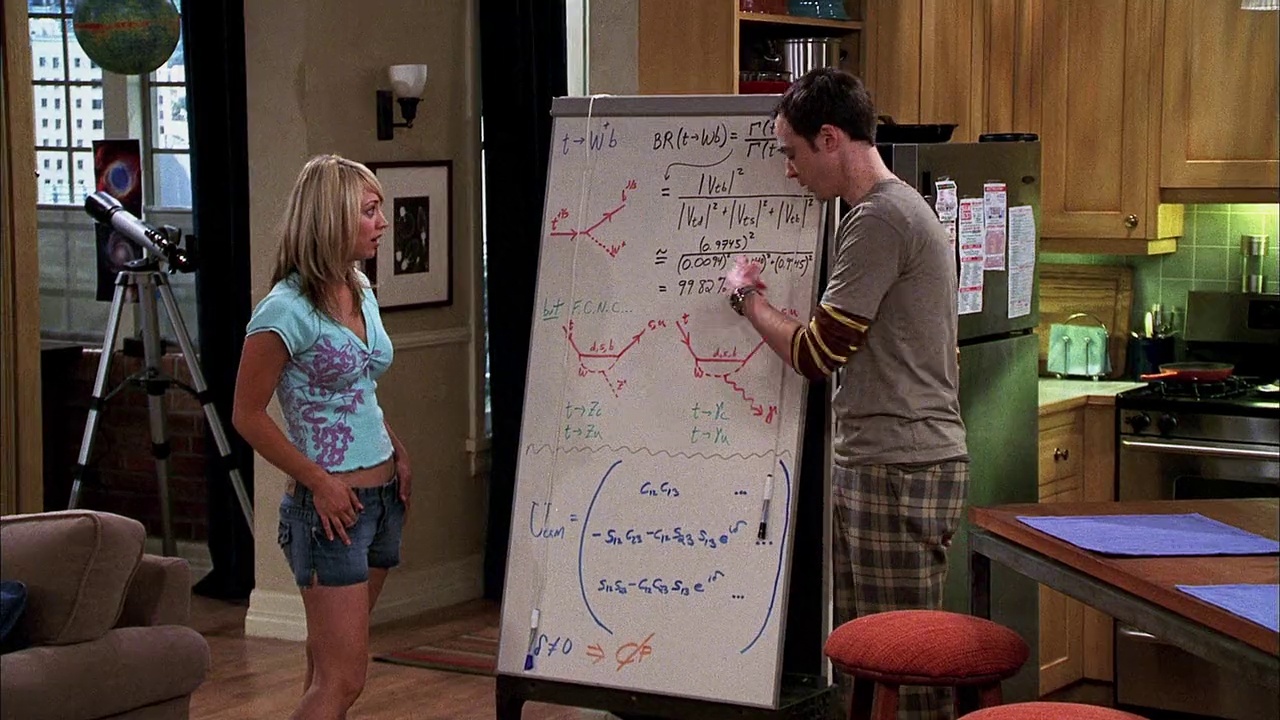 t → W⁺b
BR(t→Wb) = Γ(t
Γ(t
= |V_tb|²
|V_td|² + |V_ts|² + |V_tb|²
≅ (0.9745)²
(0.0094)² )² + (0.9745)²
= 99.82%
t
b
W⁺
but F.C.N.C...
t d,s,b c,u
W Z°
t d,s,b
W γ
t → Zc
t → Zu
t → γc
t → γu
U_CKM =
C₁₂C₁₃ ...
-S₁₂C₂₃ -C₁₂S₂₃S₁₃e^iδ ...
S₁₂S₂₃ - C₁₂C₂₃S₁₃e^iδ ...
δ ≠ 0 ⇒ CP